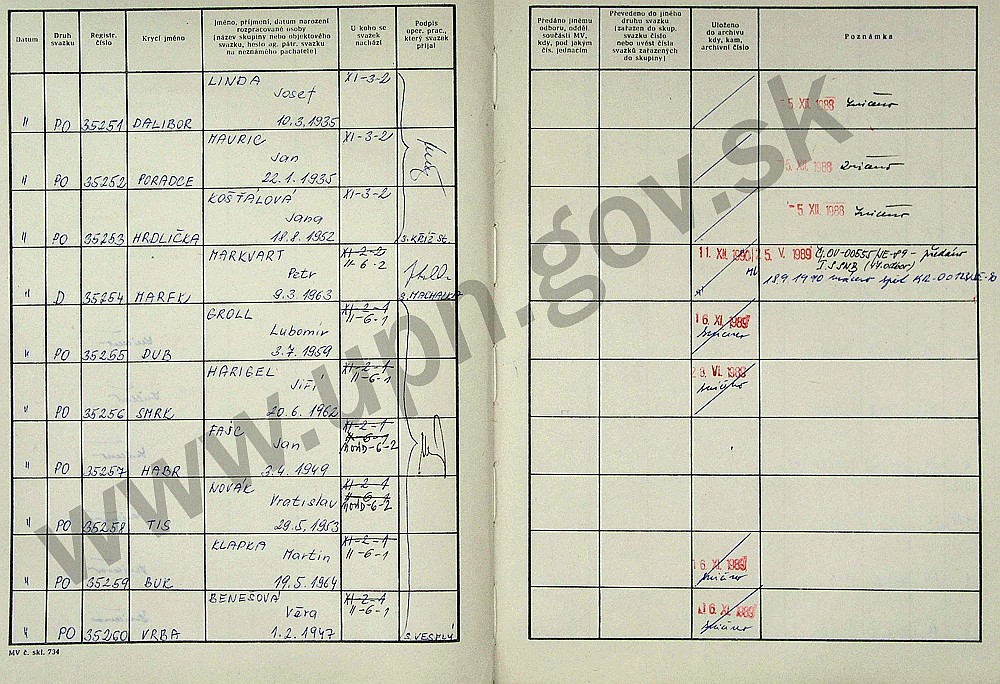 Datum
Druh svazku
Registr. číslo
Krycí jméno
Jméno, příjmení, datum narození
rozpracované osoby
(název skupiny nebo objektového
svazku, heslo ag. pátr. svazku
na neznámého pachatele)
U koho se
svazek
nachází
Podpis
oper. prac.,
který svazek
přijal
Předáno jinému
odboru, odděl.
součásti MV,
kdy, pod jakým
čís. jednacím
Převedeno do jiného
druhu svazku
(zařazen do skup.
svazku číslo
nebo uvést čísla
svazků zařazených
do skupiny)
Uloženo
do archivu
kdy, kam,
archivní číslo
Poznámka
LINDA XI-3-2
Josef
" PO 35251 DALIBOR 10.3.1935
5. XII. 1988 Zničeno
MAVRIC XI-3-2
Jan
" PO 35252 PORADCE 22.1.1935
5. XII. 1988 Zničeno
KOŠŤÁLOVÁ XI-3-2
Jana
" PO 35253 HRDLIČKA 18.8.1952 S. KŘÍŽ ST.
-5. XII. 1988 Zničeno
MARKVART XI-2-2
II-6-2
Petr
" D 35254 MAREK 9.3.1963 S. MACHALKA
25. V. 1989 Čj. OV-00555/JE-89 - předáno
I. S SNB (44. odbor)
GROLL XI-2-1
II-6-1
Lubomír
" PO 35255 DUB 3.7.1959
16. XI. 1989
zničeno
HARIGEL XI-2-1
II-6-1
Jiří
" PO 35256 SMRK 20.6.1962
VI. 1988
zničeno
FAJC XI-2-1
II-6-1
Jan
" PO 35257 HABR 3.4.1949
NOVÁK XI-2-1
II-6-1
Vratislav
" PO 35258 TIS 29.5.1953
KLAPKA XI-2-1
Martin II-6-1
" PO 35259 BUK 19.5.1964
16. XI. 1989
zničeno
BENEŠOVÁ XI-2-1
II-6-1
Věra
" PO 35260 VRBA 1.2.1947 S. VESELÝ
16. XI. 1989
zničeno
MV č. skl. 734
www.upn.gov.sk